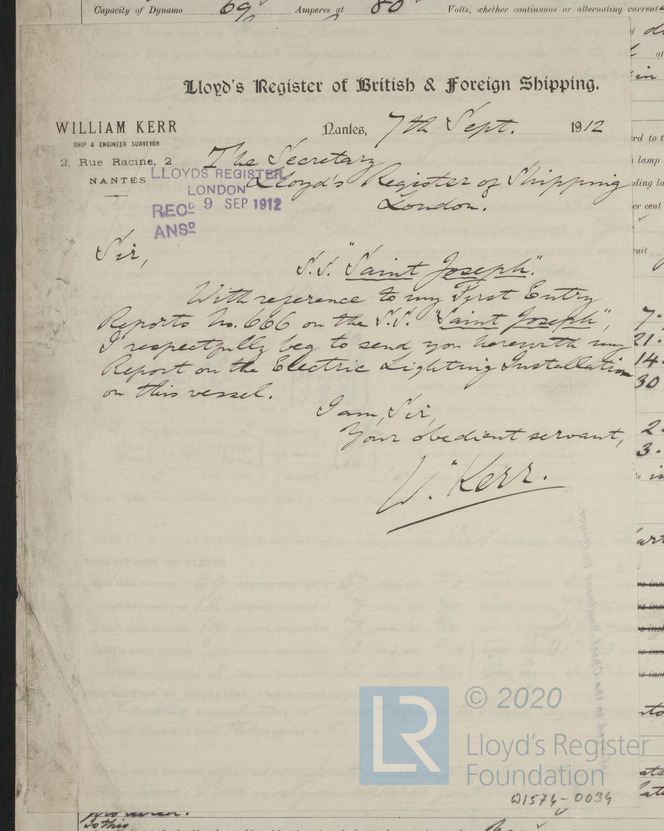 Capacity of Dynamo 69 Amperes at 80 Volts, whether continuous or alternating current
Lloyd's Register of British & Foreign Shipping.
WILLIAM KERR
SHIP & ENGINEER SURVEYOR
2, Rue Racine, 2
NANTES
Nantes, 7th Sept. 1912
The Secretary
Lloyd's Register of Shipping
London.
LLOYDS REGISTER
LONDON
RECD 9 SEP 1912
ANSD
Sir,
S.S. "Saint Joseph".
With reference to my First Entry
Reports No. 666 on the S.S. "Saint Joseph",
I respectfully beg to send you herewith my
Report on the Electric Lighting Installation
on this vessel.
I am, Sir,
Your obedient servant,
W. Kerr.
© 2020
LR
Lloyd's Register
Foundation
W1574-0034